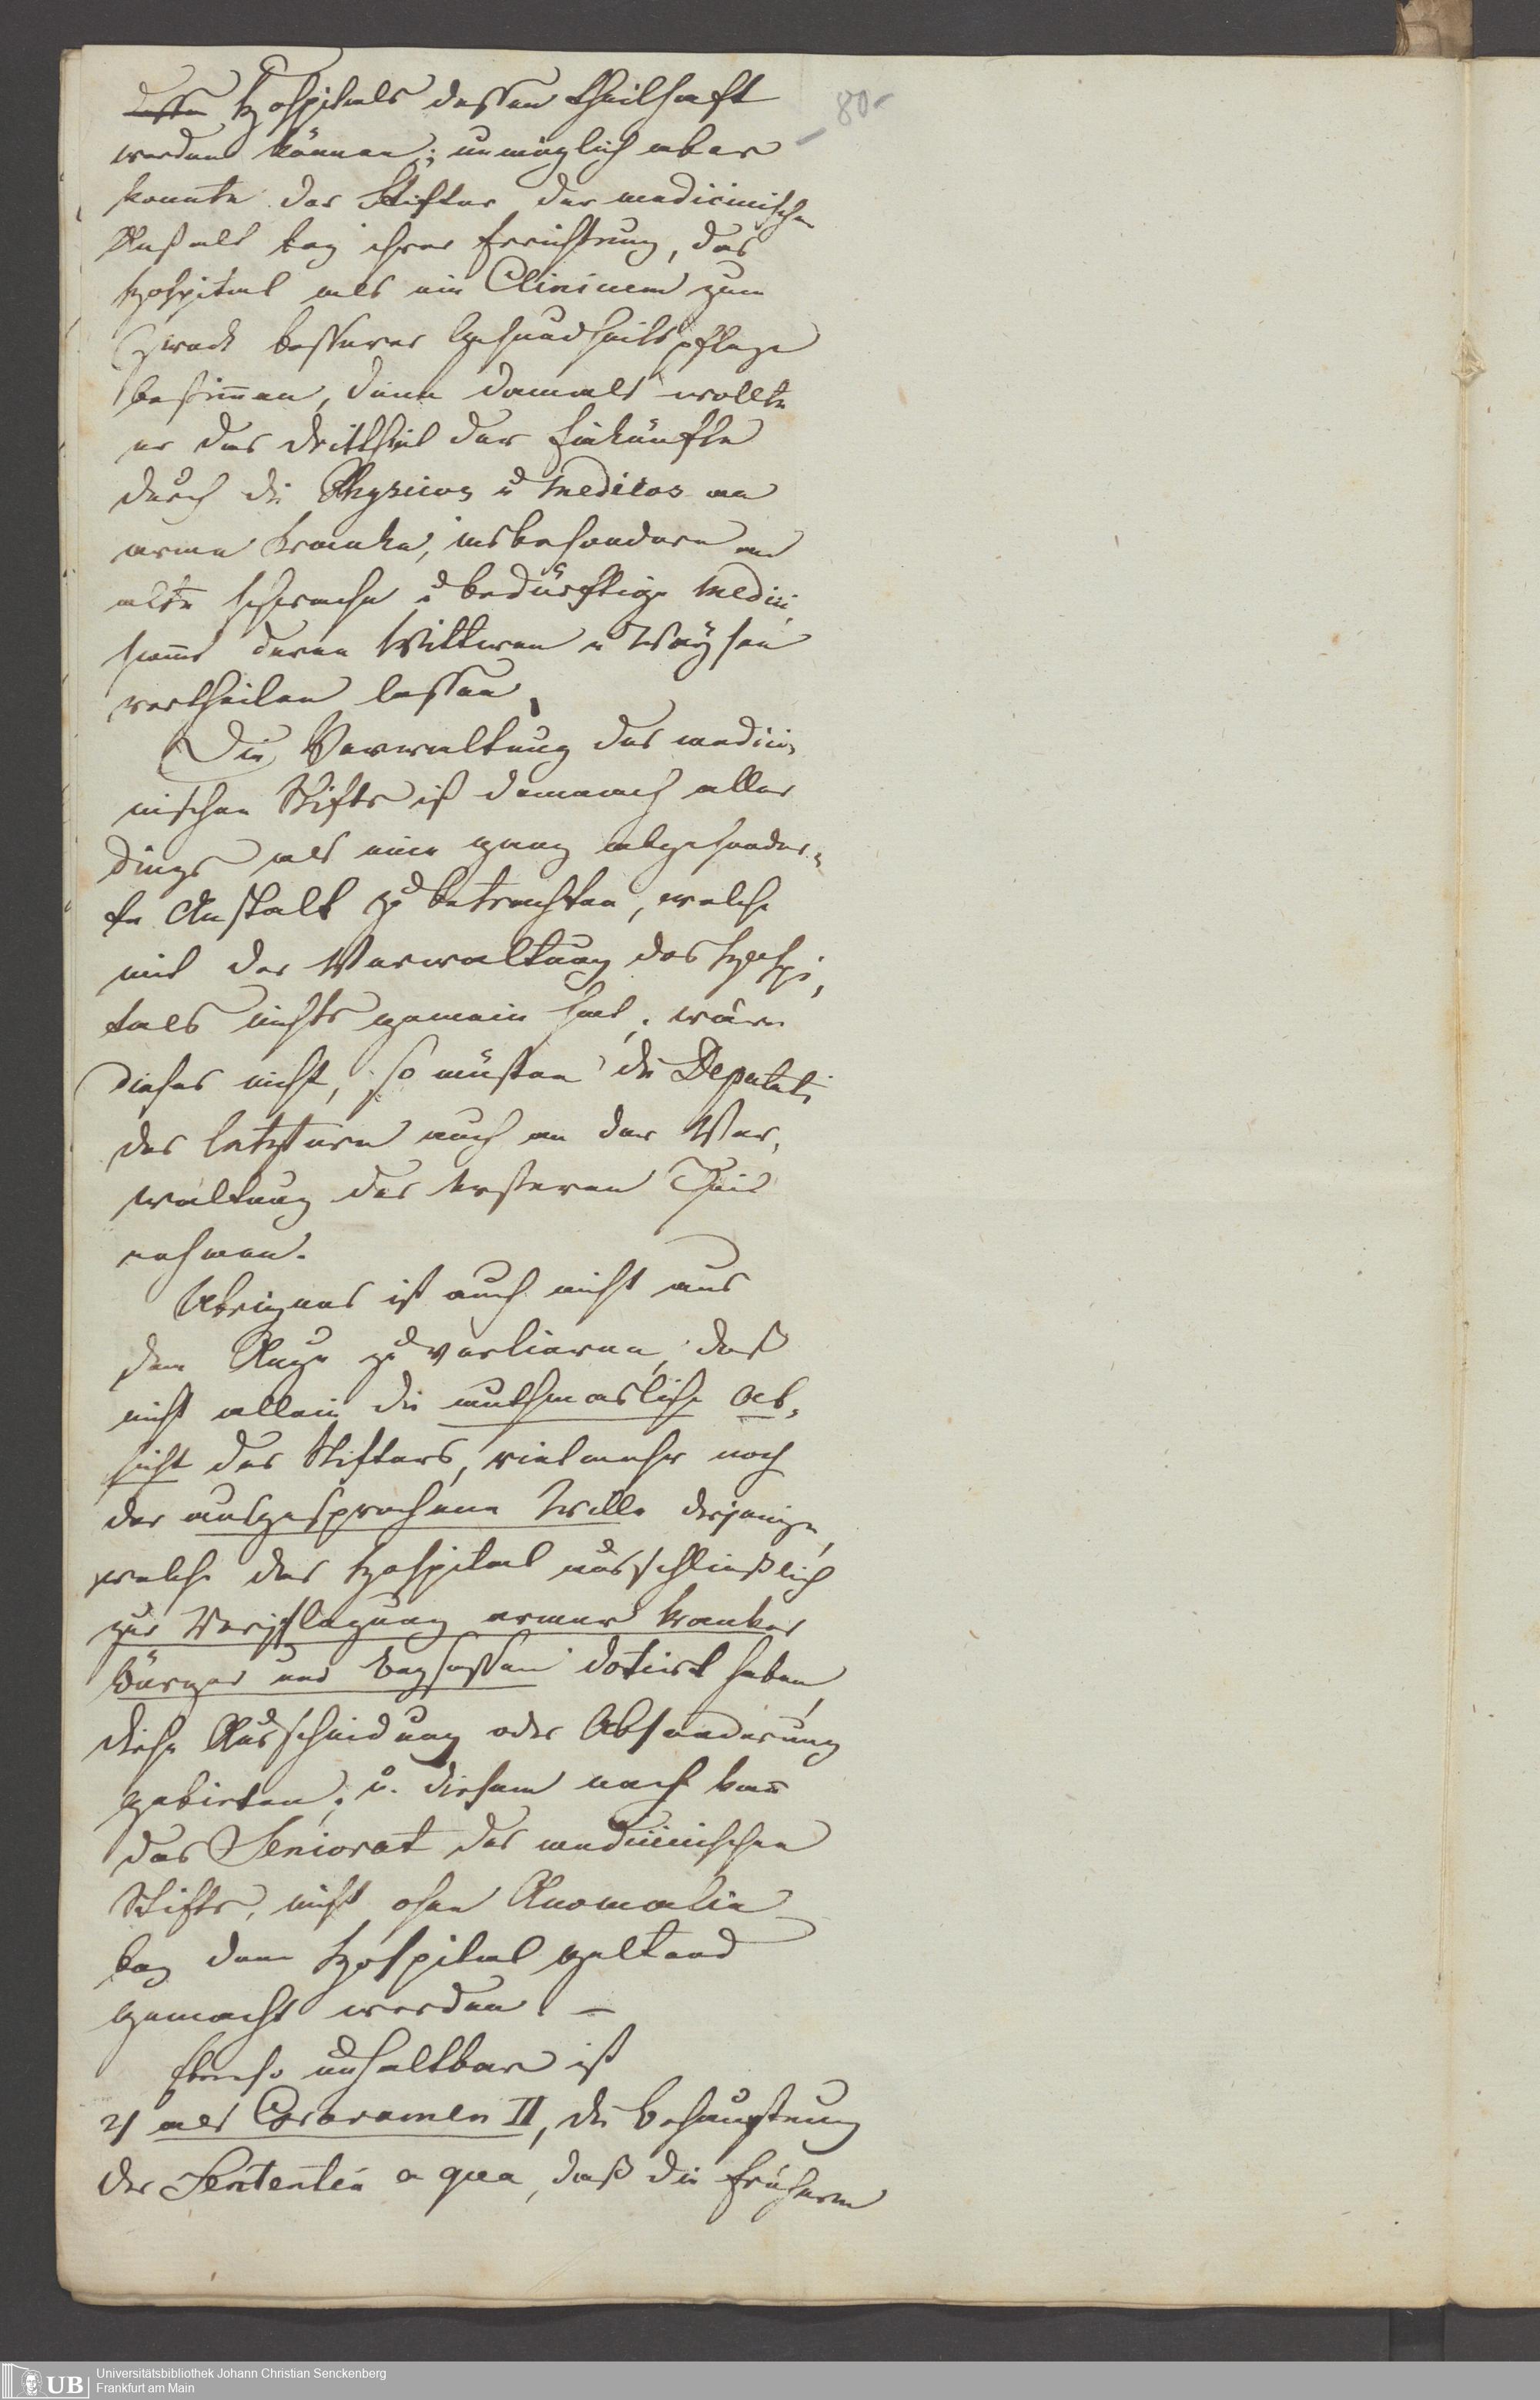 Hospitals dessen theilhaft
80
werden können; unmöglich aber
konnte der Stifter der medicinischen
Anstalt bey ihrer Errichtung, das
Hospital als ein Clinicum zum
Zweck besserer Gesundheitspflege
bestim̅en, denn damals wollte
er das Drittheil der Einkünfte
durch die Physicos u Medicos an
arme Kranke, insbesondere an
alte schwache u bedürftige Medici
sam̅t deren Wittwen u Waysen
vertheilen lassen.
Die Verwaltung des medici-
nischen Stifts ist demnach aller
dings als eine ganz abgesonder-
te Anstalt zu betrachten, welche
mit der Verwaltung des Hospi-
tals nichts gemein hat; wäre
dieses nicht, so müsten die Deputati
des letztern auch an der Ver-
waltung des ersteren Theil
nehmen.
Uebrigens ist auch nicht aus
dem Auge zu verlieren, daß
nicht allein die muthmasliche Ab-
sicht des Stifters, vielmehr noch
der ausgesprochene Wille derjenigen,
welche das Hospital ausschließlich
zur Verpflegung armer kranker
Bürger und Beysassen dotirt haben,
diese Ausscheidung oder Absonderung
gebieten; u. diesem nach kan̅
das Seniorat des medicinischen
Stifts, nicht ohne Anomalie
bey dem Hospital geltend
gemacht werden. –
Ebenso unhaltbar ist
2) als Gravamen II, die Behauptung
der Sententia a qua, daß die frühern
Universitätsbibliothek Johann Christian Senckenberg
UB Frankfurt am Main